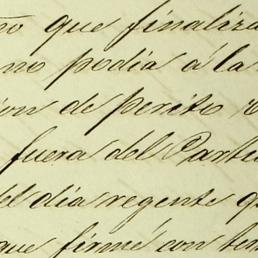 no que finaliza
no podia á la
ion de perito
fuera del Parti
el dia regente q
que firmé con te